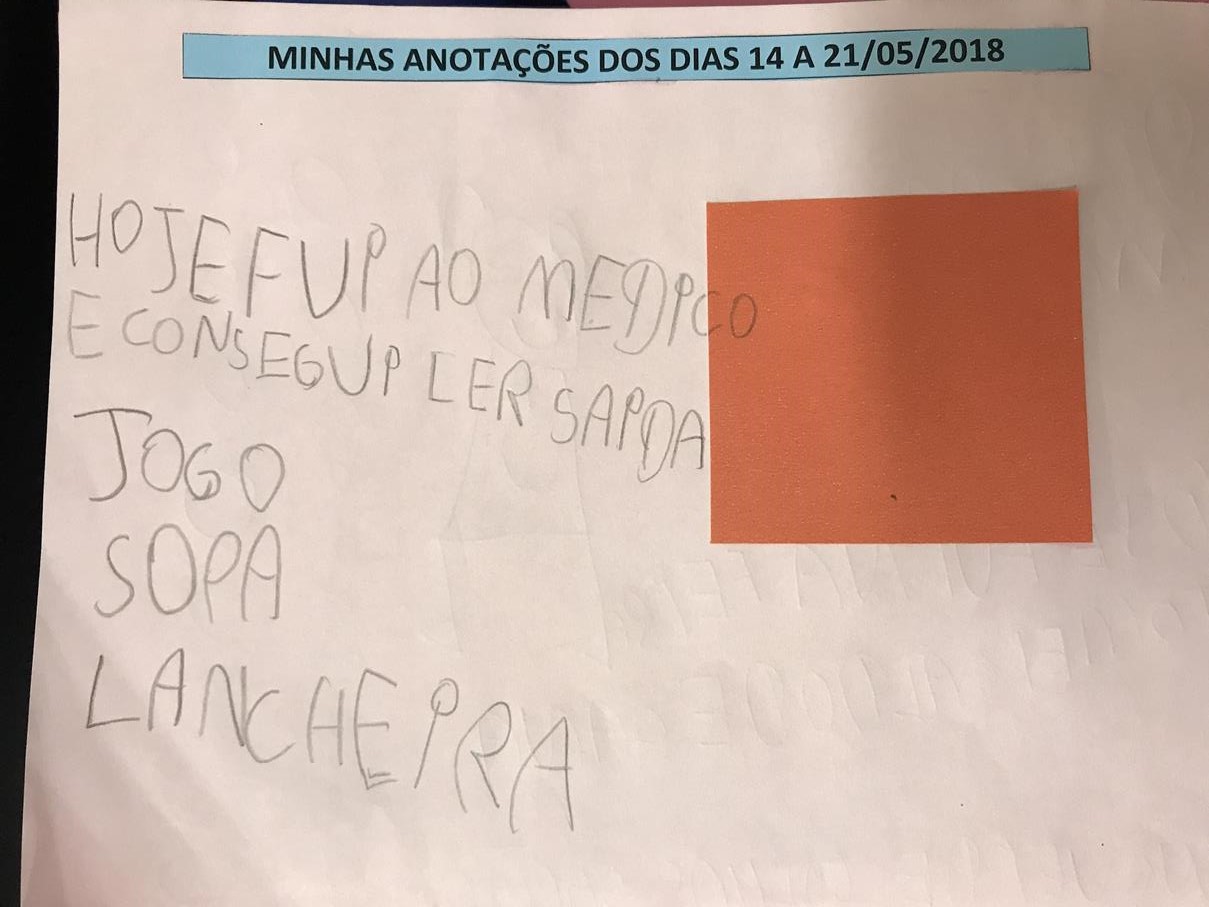 MINHAS ANOTAÇÕES DOS DIAS 14 A 21/05/2018
HOJE FUI AO MEDICO
E CONSEGUI LER SAIDA
JOGO
SOPA
LANCHEIRA